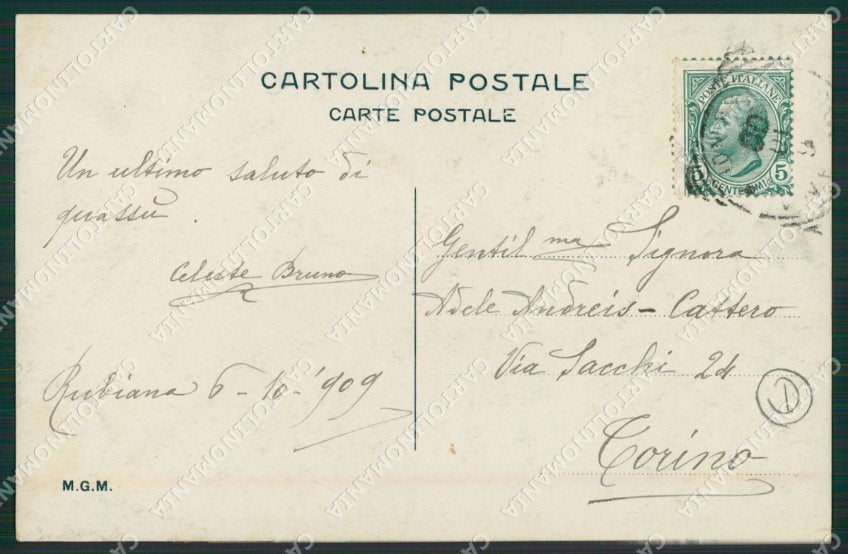 CARTOLINA POSTALE
CARTE POSTALE
POSTE ITALIANE
5 CENTESIMI 5
Un ultimo saluto di
quassù.
Celeste Bruno
Rubiana 6-10-'909
Gentil ma Signora
Adele Andreis - Cattero
Via Sacchi 24
Torino
M.G.M.
CARTOLINOMANIA